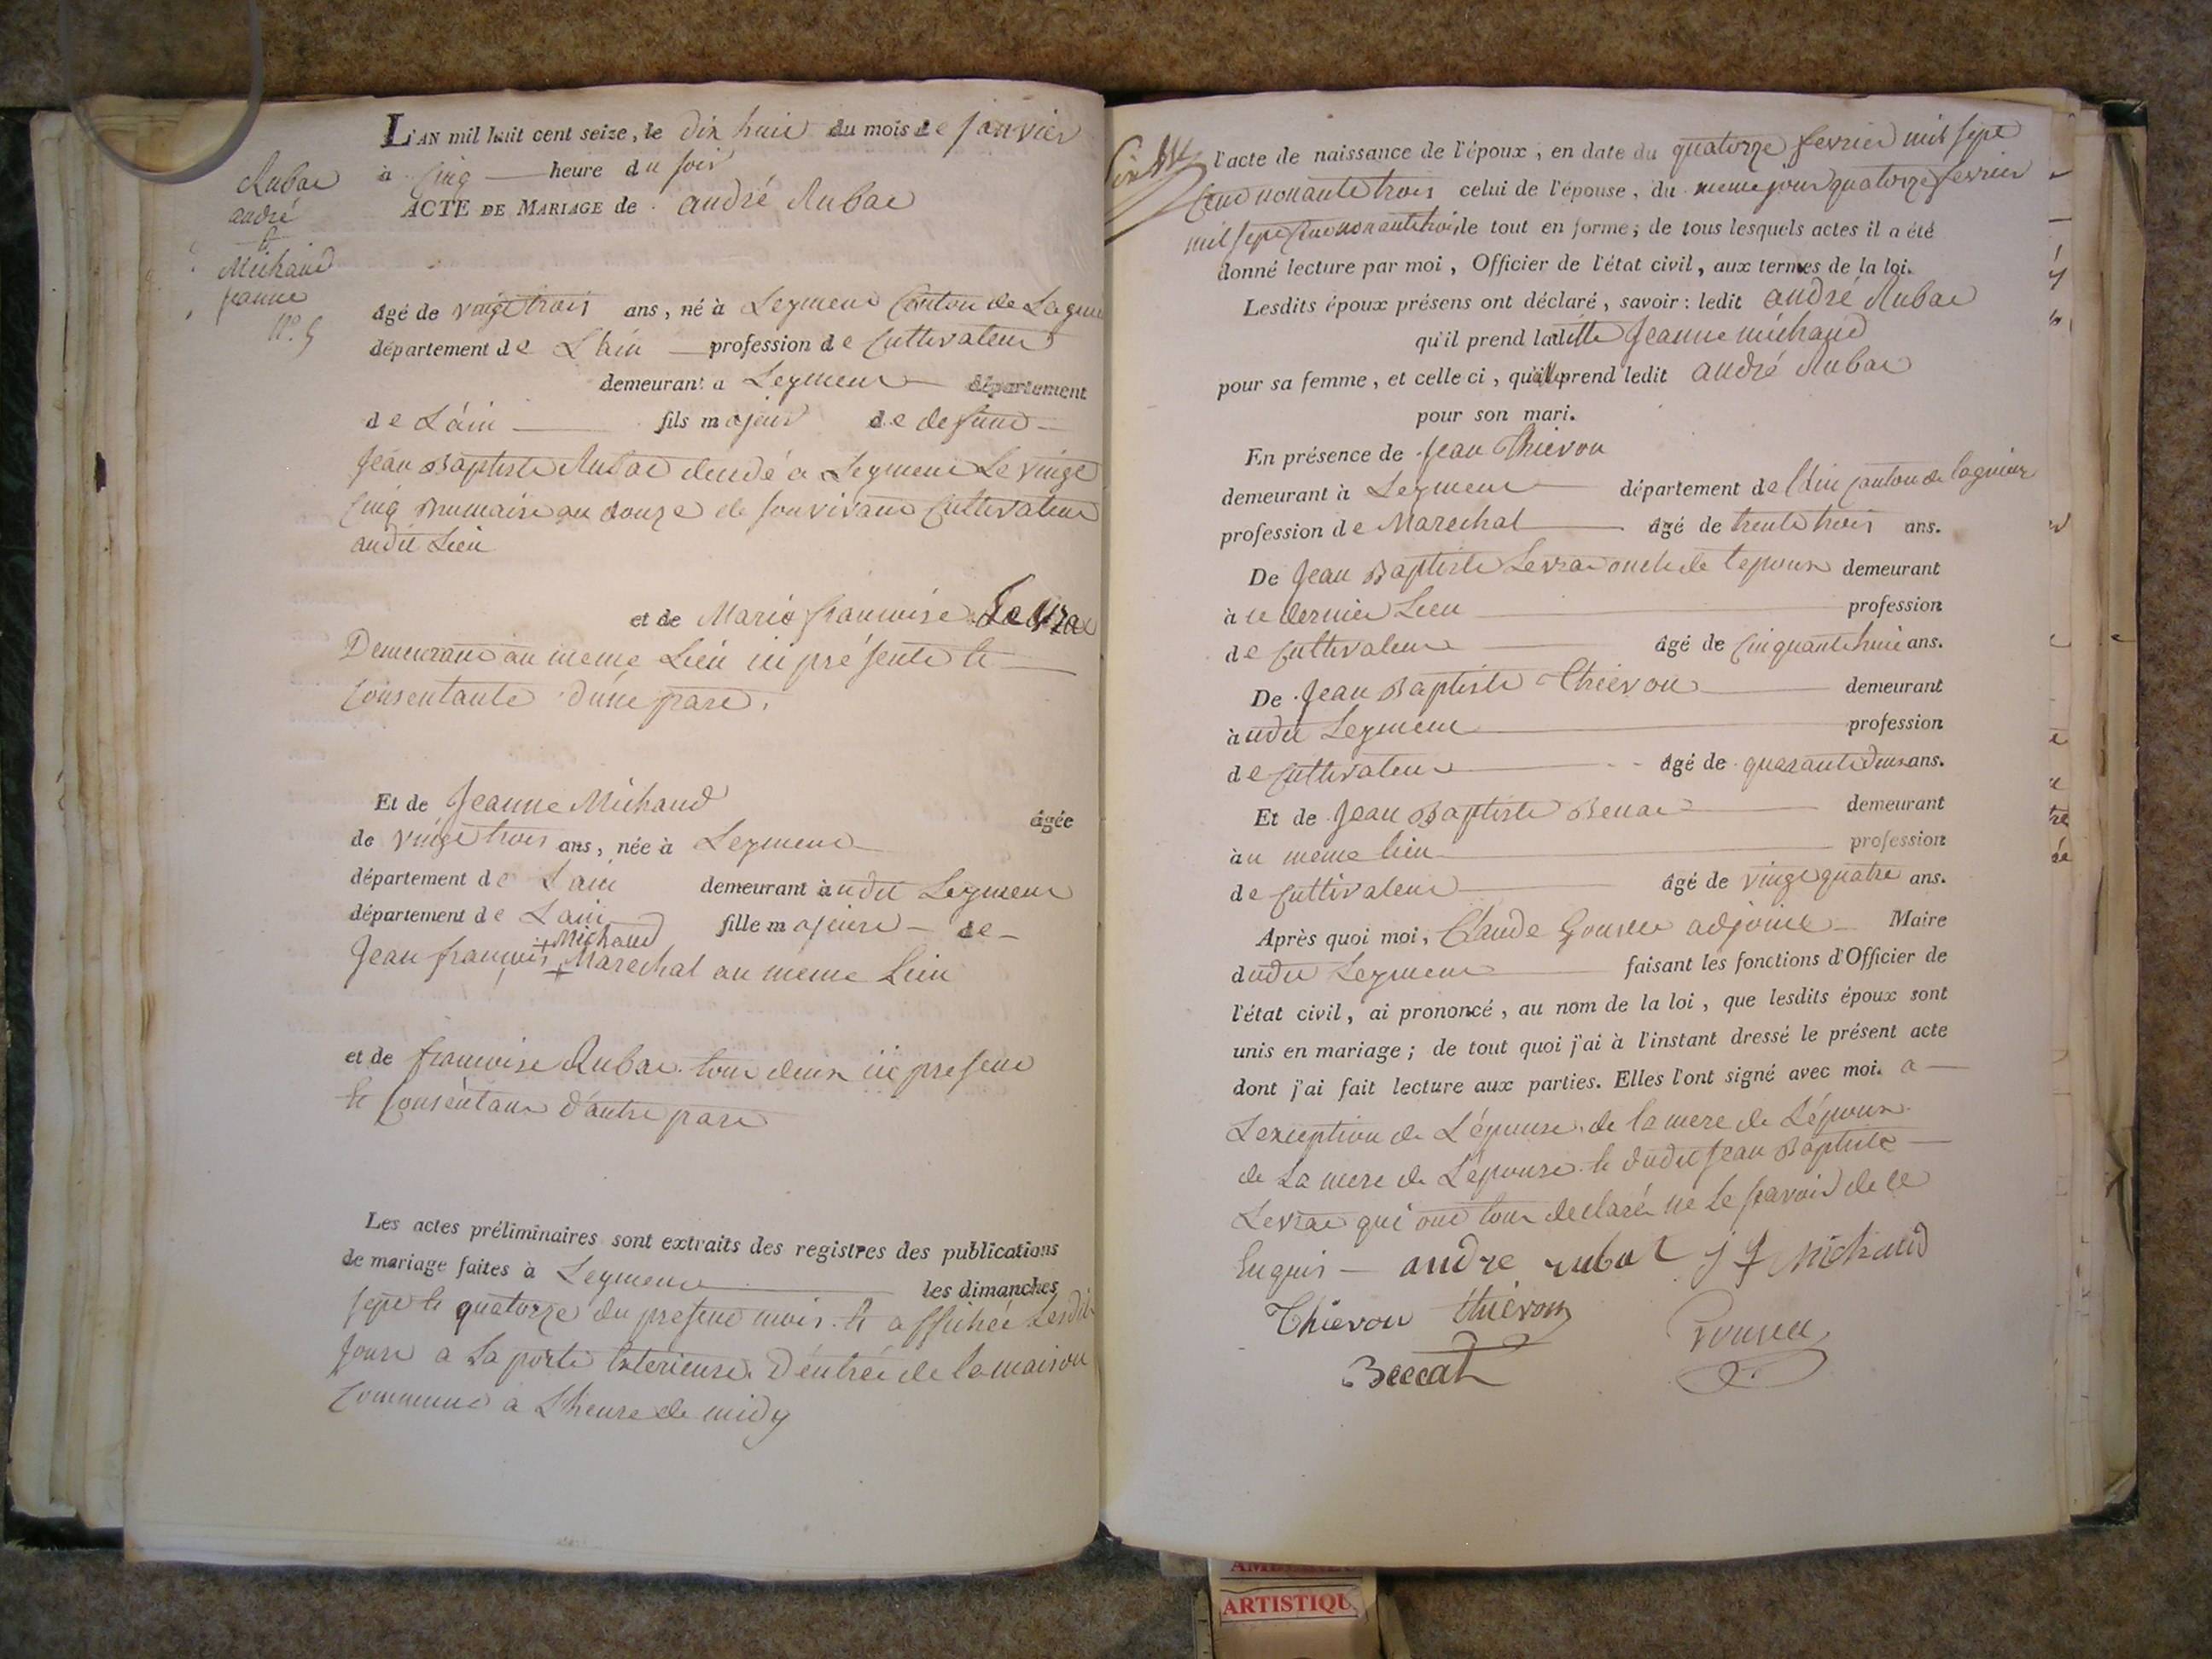 Rubat
andré
et
Michaud
jeanne
N°. 5
L'AN mil huit cent seize, le dix huit du mois de janvier
à cinq heure du soir
ACTE DE MARIAGE de andré Rubat
âgé de vingt trois ans, né à Leyment Canton de Lagnieu
département de L'ain profession de Cultivateur
demeurant a Leyment département
de L'ain fils majeur de defunt
Jean Baptiste Rubat décédé a Leyment Le vingt
cinq brumaire an douze de son vivant Cultivateur
audit Lieu
et de Marie françoise Levrat
Demeurant au meme Lieu ici présente et
consentante d'une part.
Et de Jeanne Michaud
âgée
de vingt trois ans, née à Leyment
département de L'ain demeurant audit Leyment
département de L'ain fille majeure de
+ Michaud
Jean françois + Marechal au meme Lieu
et de françoise Rubat tous deux ici present
et Consentans d'autre part
Les actes préliminaires sont extraits des registres des publications
de mariage faites à Leyment les dimanches
sept et quatorze du present mois et affichée Lesdits
jours a La porte Exterieure d'entrée de la maison
commune a L'heure de midy
l'acte de naissance de l'époux, en date du quatorze fevrier mil sept
Cent nonante trois celui de l'épouse, du meme jour quatorze fevrier
mil sept Cent nonante trois le tout en forme; de tous lesquels actes il a été
donné lecture par moi, Officier de l'état civil, aux termes de la loi.
Lesdits époux présens ont déclaré, savoir: ledit andré Rubat
qu'il prend laditte Jeanne michaud
pour sa femme, et celle ci, qu'elle prend ledit andré Rubat
pour son mari.
En présence de Jean Thievon
demeurant à Leyment département de l'ain canton de lagnieu
profession de Marechal âgé de trente trois ans.
De Jean Baptiste Levrat oncle de l'epoux demeurant
à ce dernier Lieu profession
de Cultivateur âgé de cinquante huit ans.
De Jean Baptiste Thievon demeurant
àudit Leyment profession
de Cultivateur âgé de quarante deux ans.
Et de Jean Baptiste Beccat demeurant
àu meme lieu profession
de Cultivateur âgé de vingt quatre ans.
Après quoi moi, Claude Gousset adjoint Maire
dudit Leyment faisant les fonctions d'Officier de
l'état civil, ai prononcé, au nom de la loi, que lesdits époux sont
unis en mariage; de tout quoi j'ai à l'instant dressé le présent acte
dont j'ai fait lecture aux parties. Elles l'ont signé avec moi. a
L'exception de L'épouse, de la mere de L'époux
de La mere de L'épouse et dudit Jean Baptiste
Levrat qui ont tous declaré ne Le savoir de ce
Enquis andre rubat j f Michaud
Thievon thievon
Beccat
AMBERIEU
ARTISTIQU